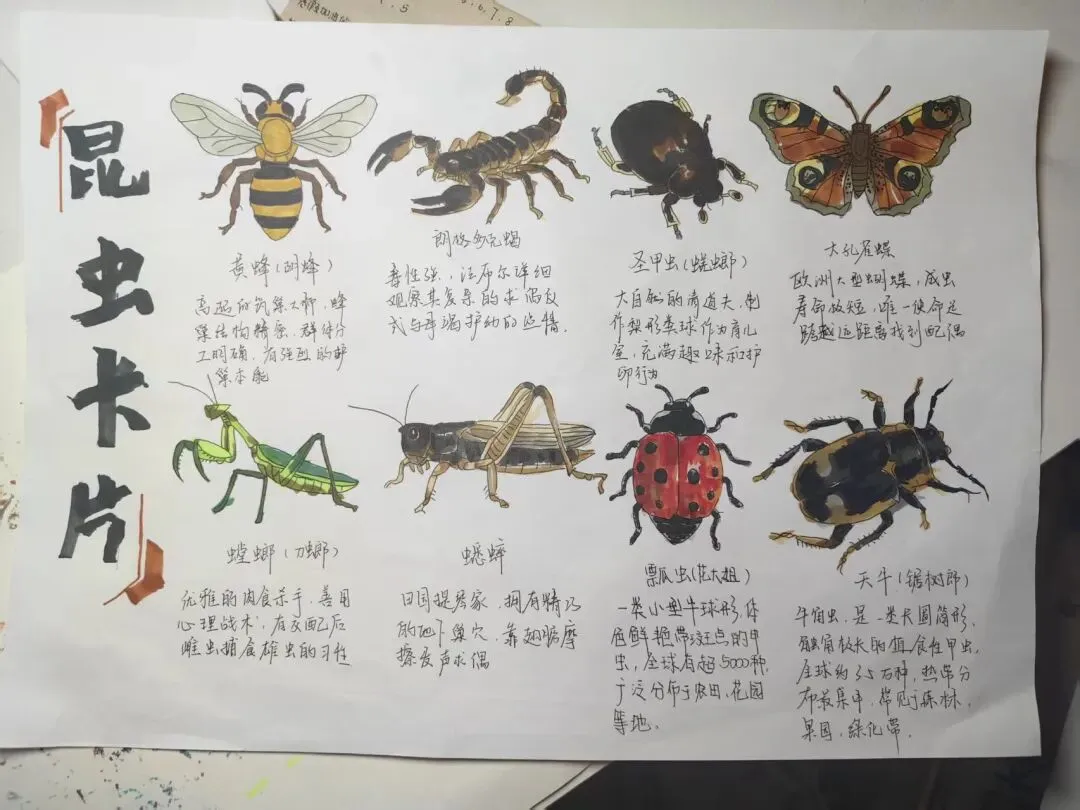 昆虫卡片
黄蜂(胡蜂)
高超的筑巢工师,蜂
巢结构精密,群体分
工明确,有强烈的护
巢本能
朗格多克蝎
毒性强,法布尔详细
观察其复杂的求偶仪
式与母蝎护幼的亲情.
圣甲虫(蜣螂)
大自然的清道夫,制
作梨形粪球作为育儿
室,充满趣味和护
卵行为
大孔雀蝶
欧洲大型蝴蝶,成虫
寿命极短,唯一使命是
跨越远距离找到配偶
螳螂(刀螂)
优雅的肉食杀手,善用
心理战术,有交配后
雌虫捕食雄虫的习性
蟋蟀
田园提琴家,拥有精巧
的地下巢穴,靠翅膀摩
擦发声求偶
瓢瓜虫(花大姐)
一类小型半球形,体
色鲜艳带斑点的甲
虫,全球有超5000种,
广泛分布于农田、花园
等地.
天牛(锯树郎)
牛角虫,是一类长圆筒形,
触角较长的植食性甲虫,
全球约3.5万种,热带分
布最集中,常见于森林,
果园,绿化带.
5
6,7,8